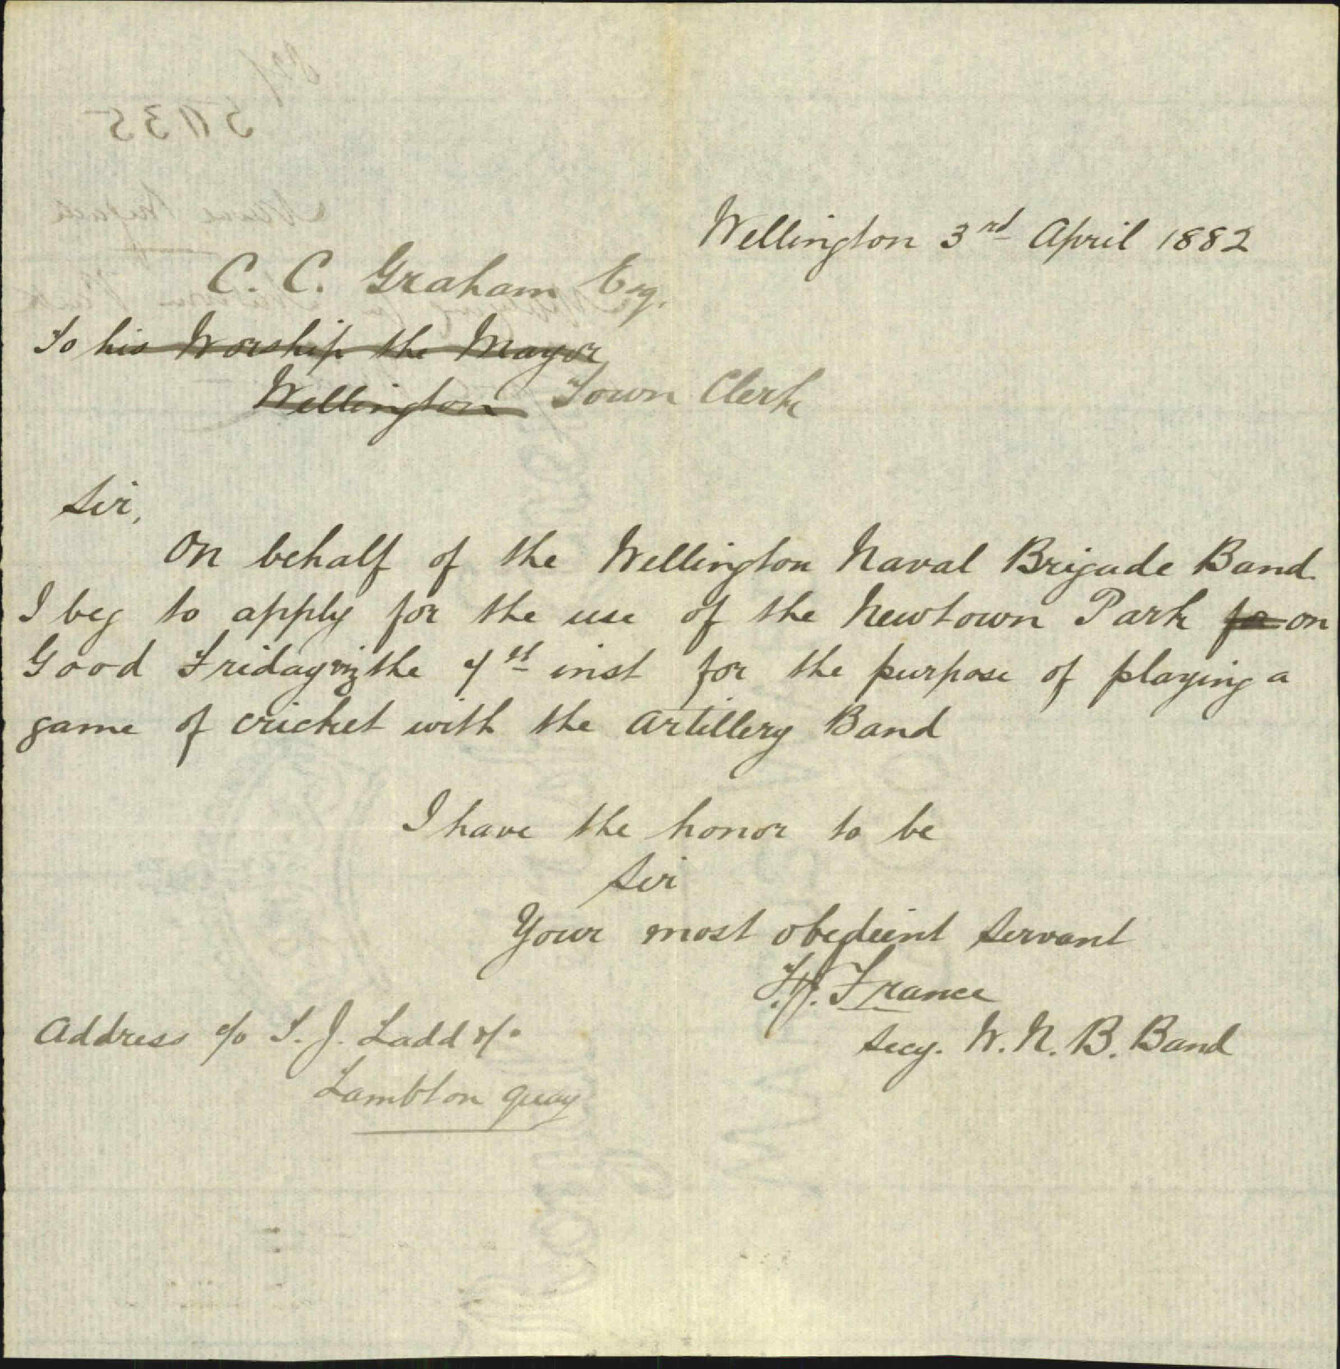 Wellington 3rd April 1882
C. C. Graham Esq.
To his Worship the Mayor
Wellington Town Clerk
Sir,
On behalf of the Wellington Naval Brigade Band
I beg to apply for the use of the Newtown Park for on
Good Friday viz the 7st inst for the purpose of playing a
game of cricket with the Artillery Band
I have the honor to be
Sir
Your most obedient servant
F.J. France
Secy. W. N. B. Band
Address c/o T. J. Ladd
Lambton quay